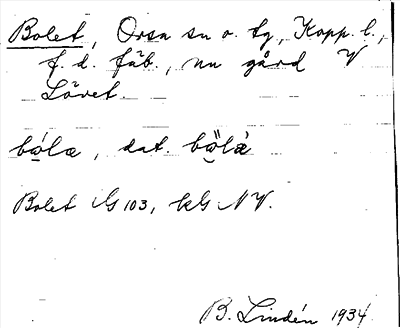 Bolet, Orsa sn o. tg., Kopp. l.,
f. d. fäb., nu gård V
Lövet.
bo̯la, dat. bo̯la
Bolet G 103, kG NV.
B. Lindén 1934